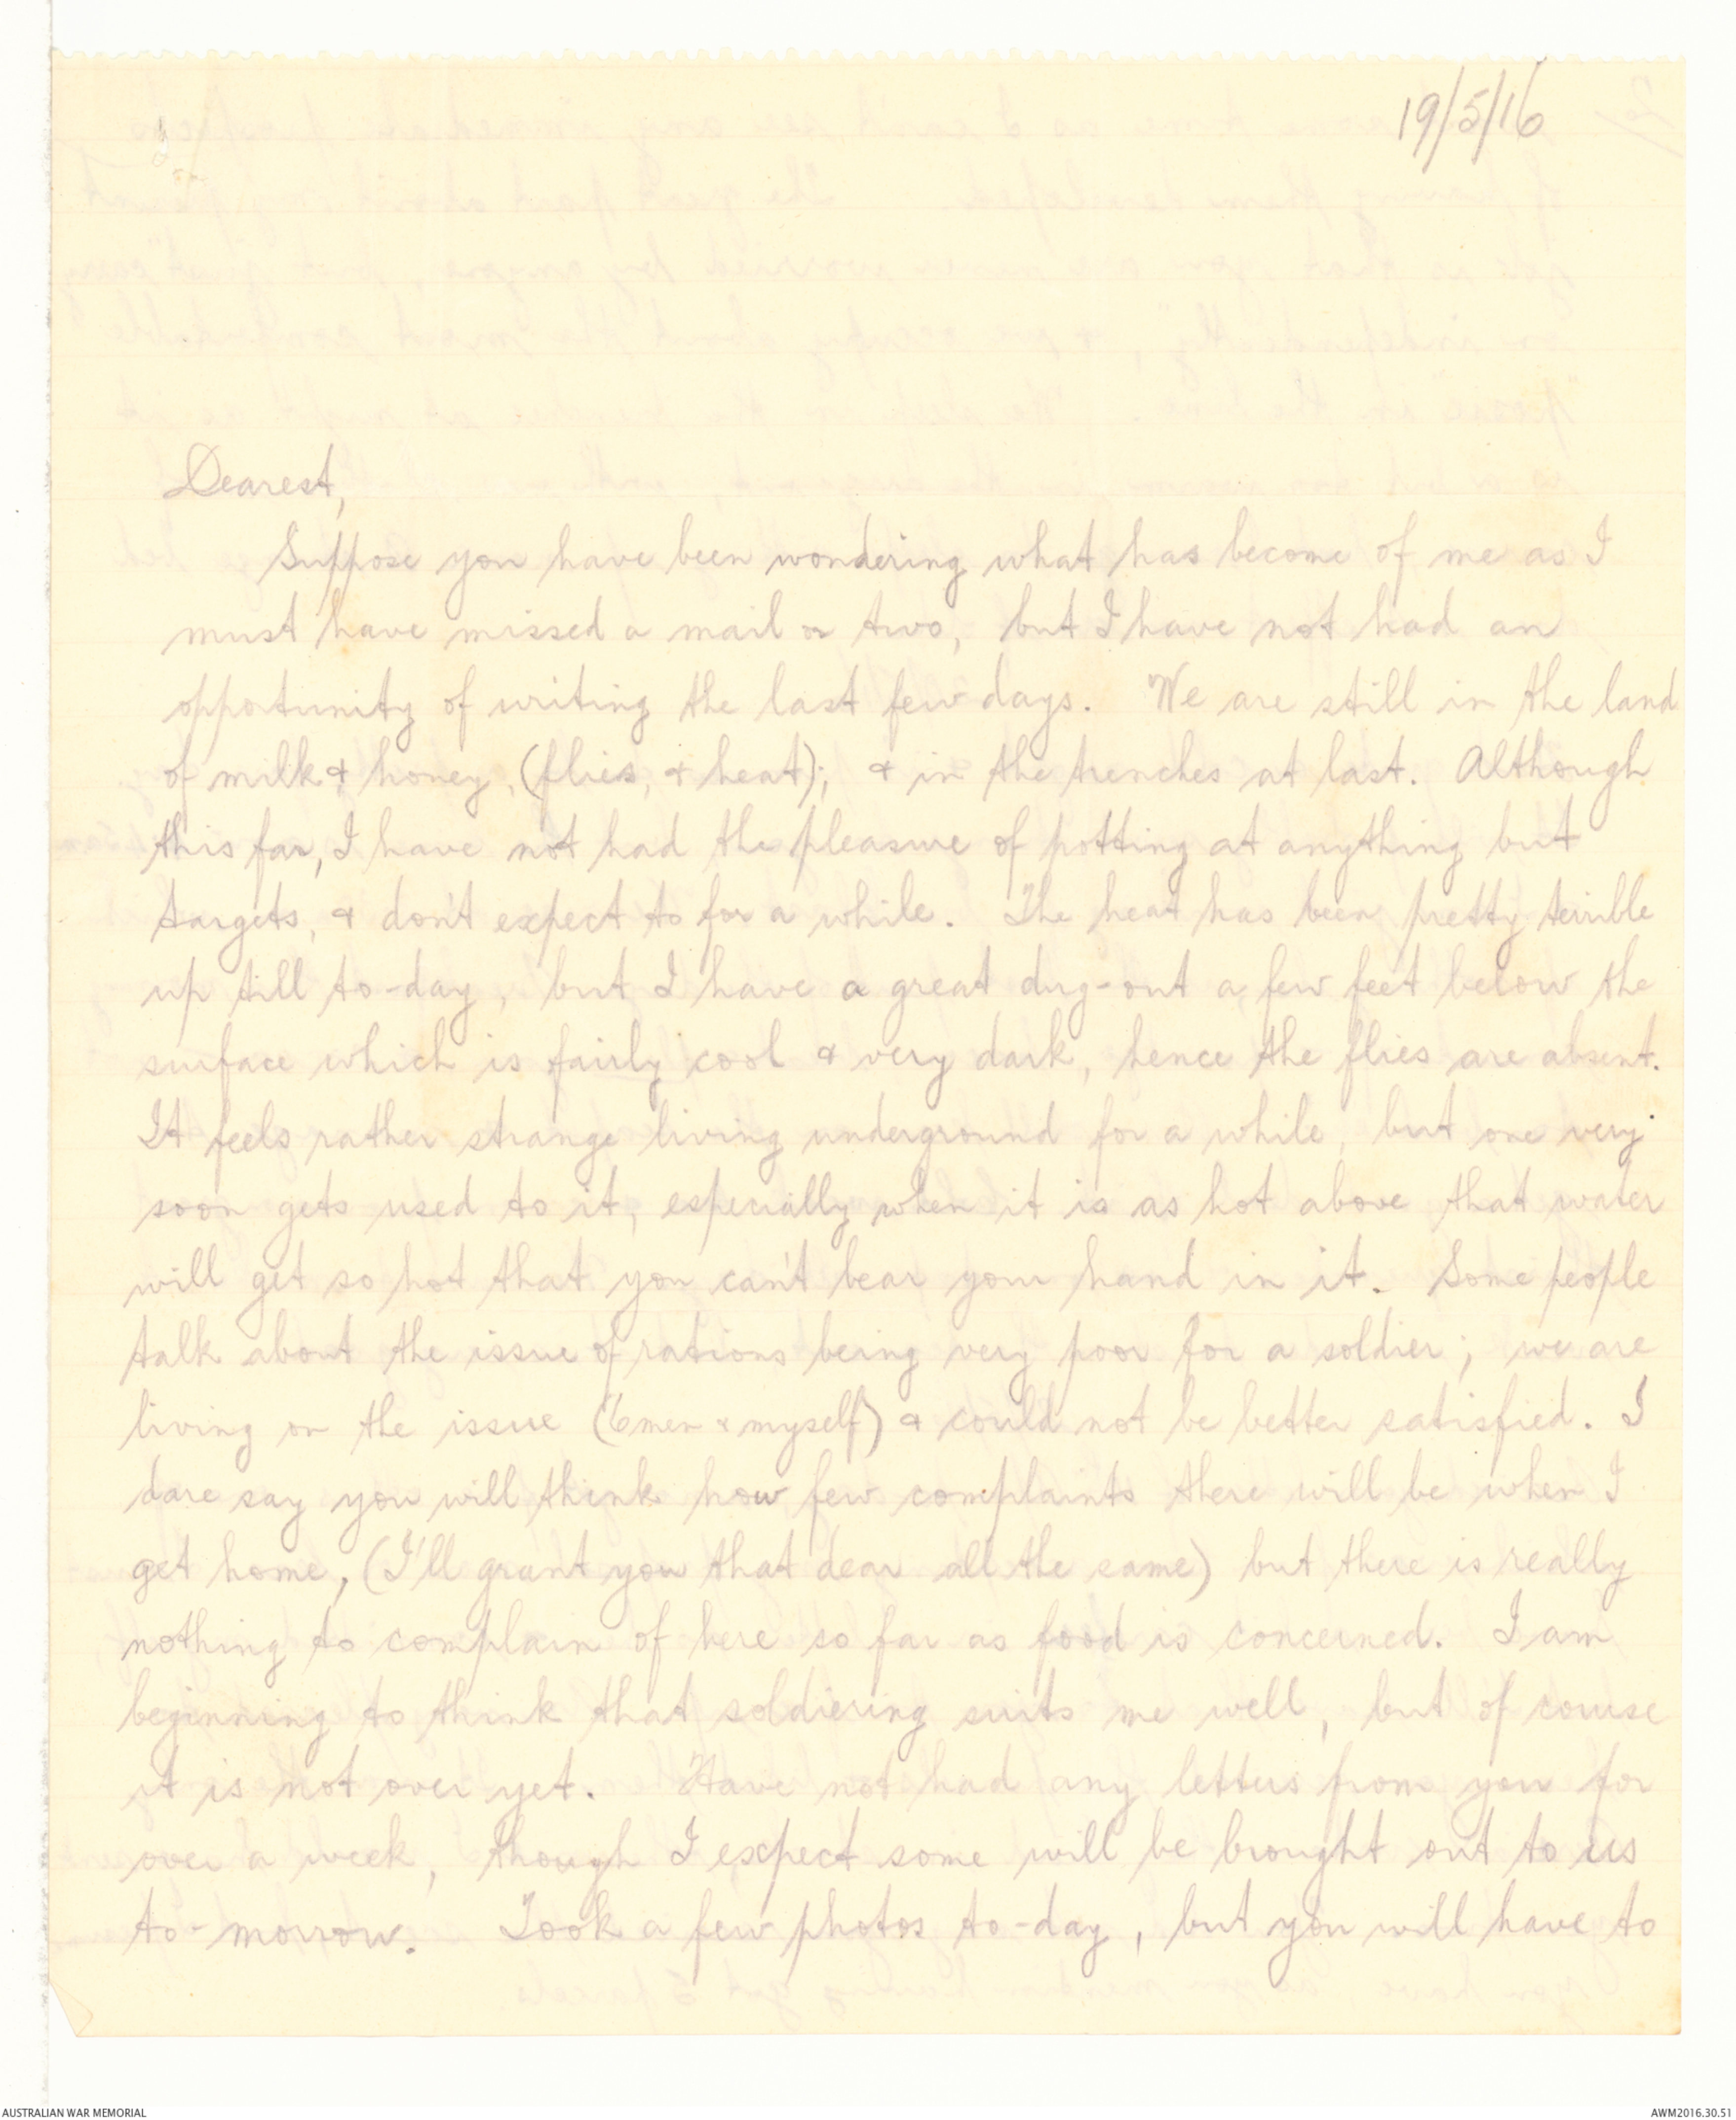 19/5/16
Dearest,
Suppose you have been wondering what has become of me as I
must have missed a mail or two, but I have not had an
opportunity of writing the last few days. We are still in the land
of milk & honey, (flies, & heat); & in the trenches at last. Although
this far, I have not had the pleasure of potting at anything but
targets, & don't expect to for a while. The heat has been pretty terrible
up till to-day, but I have a great dug-out a few feet below the
surface which is fairly cool & very dark, hence the flies are absent.
It feels rather strange living underground for a while, but one very
soon gets used to it, especially when it is as hot above that water
will get so hot that you can't bear your hand in it. Some people
talk about the issue of rations being very poor for a soldier; we are
living on the issue (6 men & myself) & could not be better satisfied. I
dare say you will think how few complaints there will be when I
get home, (I'll grant you that dear all the same) but there is really
nothing to complain of here so far as food is concerned. I am
beginning to think that soldiering suits me well, but of course
it is not over yet. Have not had any letters from you for
over a week, though I expect some will be brought out to us
to-morrow. Took a few photos to-day, but you will have to
AUSTRALIAN WAR MEMORIAL
AWM2016.30.51